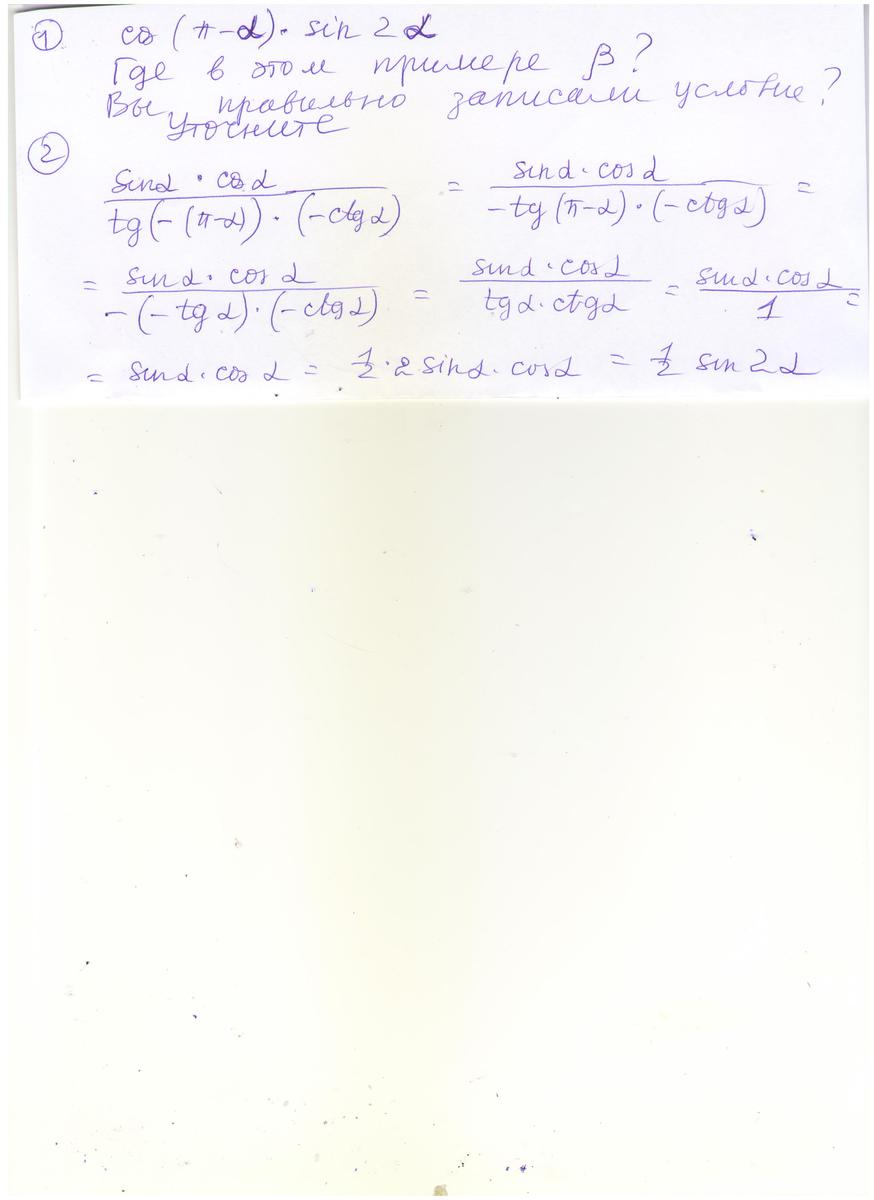 ① cos (π-α)· sin 2α
Где в этом примере β?
Вы правильно записали условие?
Уточните
②
sinα · cosα / tg(-(π-α)) · (-ctgα) = sinα · cosα / -tg(π-α) · (-ctgα) =
= sinα · cosα / -(-tgα) · (-ctgα) = sinα · cosα / tgα · ctgα = sinα · cosα / 1 =
= sinα · cosα = 1/2 · 2 sinα · cosα = 1/2 sin 2α